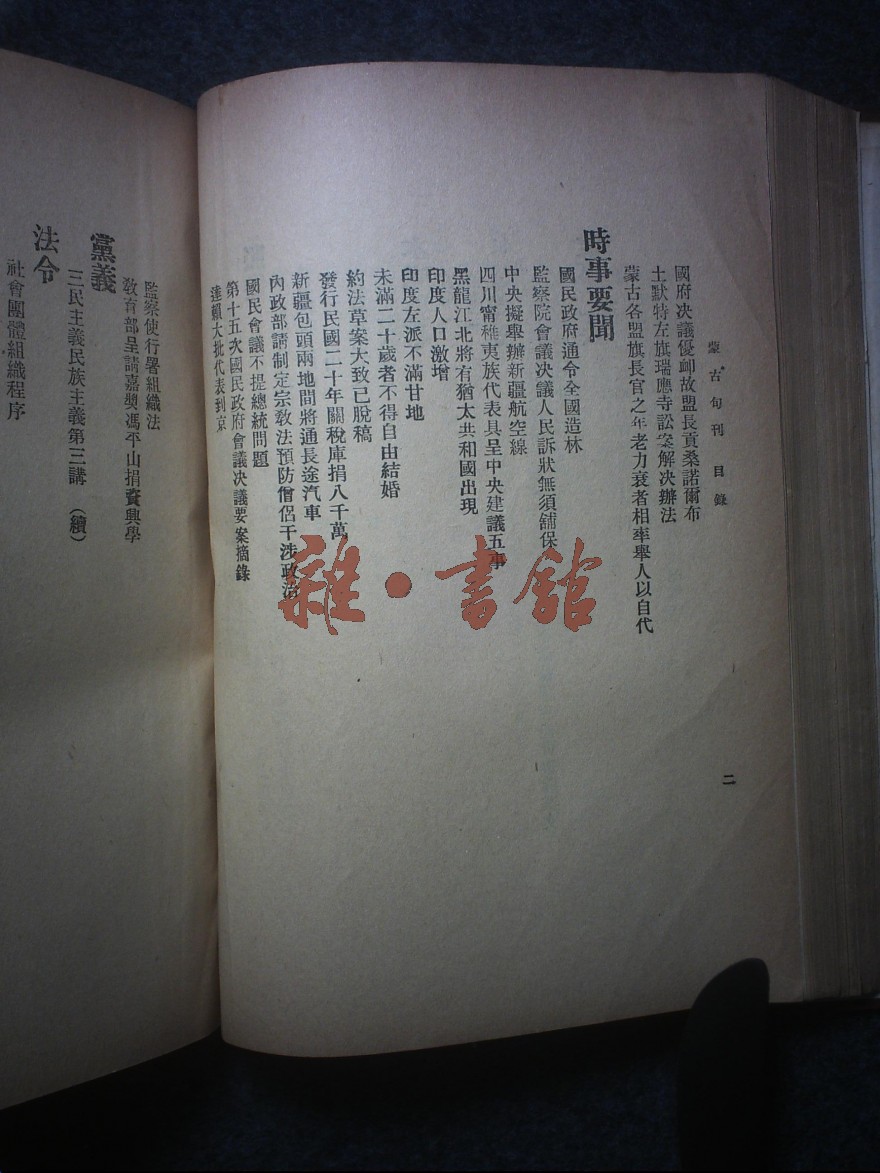 蒙古旬刊目錄
二
國府決議優卹故盟長貢桑諾爾布
土默特左旗瑞應寺訟案解決辦法
蒙古各盟旗長官之年老力衰者相率舉人以自代
時事要聞
國民政府通令全國造林
監察院會議決議人民訴狀無須舖保
中央擬舉辦新疆航空線
四川甯稚夷族代表具呈中央建議五事
黑龍江北將有猶太共和國出現
印度人口激增
印度左派不滿甘地
未滿二十歲者不得自由結婚
約法草案大致已脫稿
發行民國二十年關稅庫捐八千萬
新疆包頭兩地間將通長途汽車
內政部請制定宗教法預防僧侶干涉政治
國民會議不提總統問題
第十五次國民政府會議決議要案摘錄
達賴大批代表到京
監察使行署組織法
教育部呈請嘉獎馮平山捐資興學
黨義
三民主義民族主義第三講（續）
法令
社會團體組織程序
雜·書館